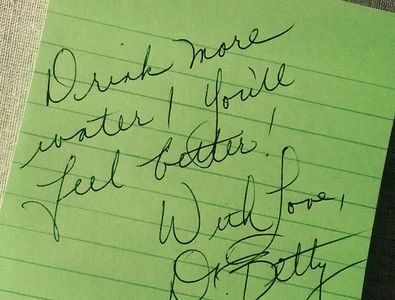 Drink more
water! You'll
feel better!
With Love,
Dr. Betty